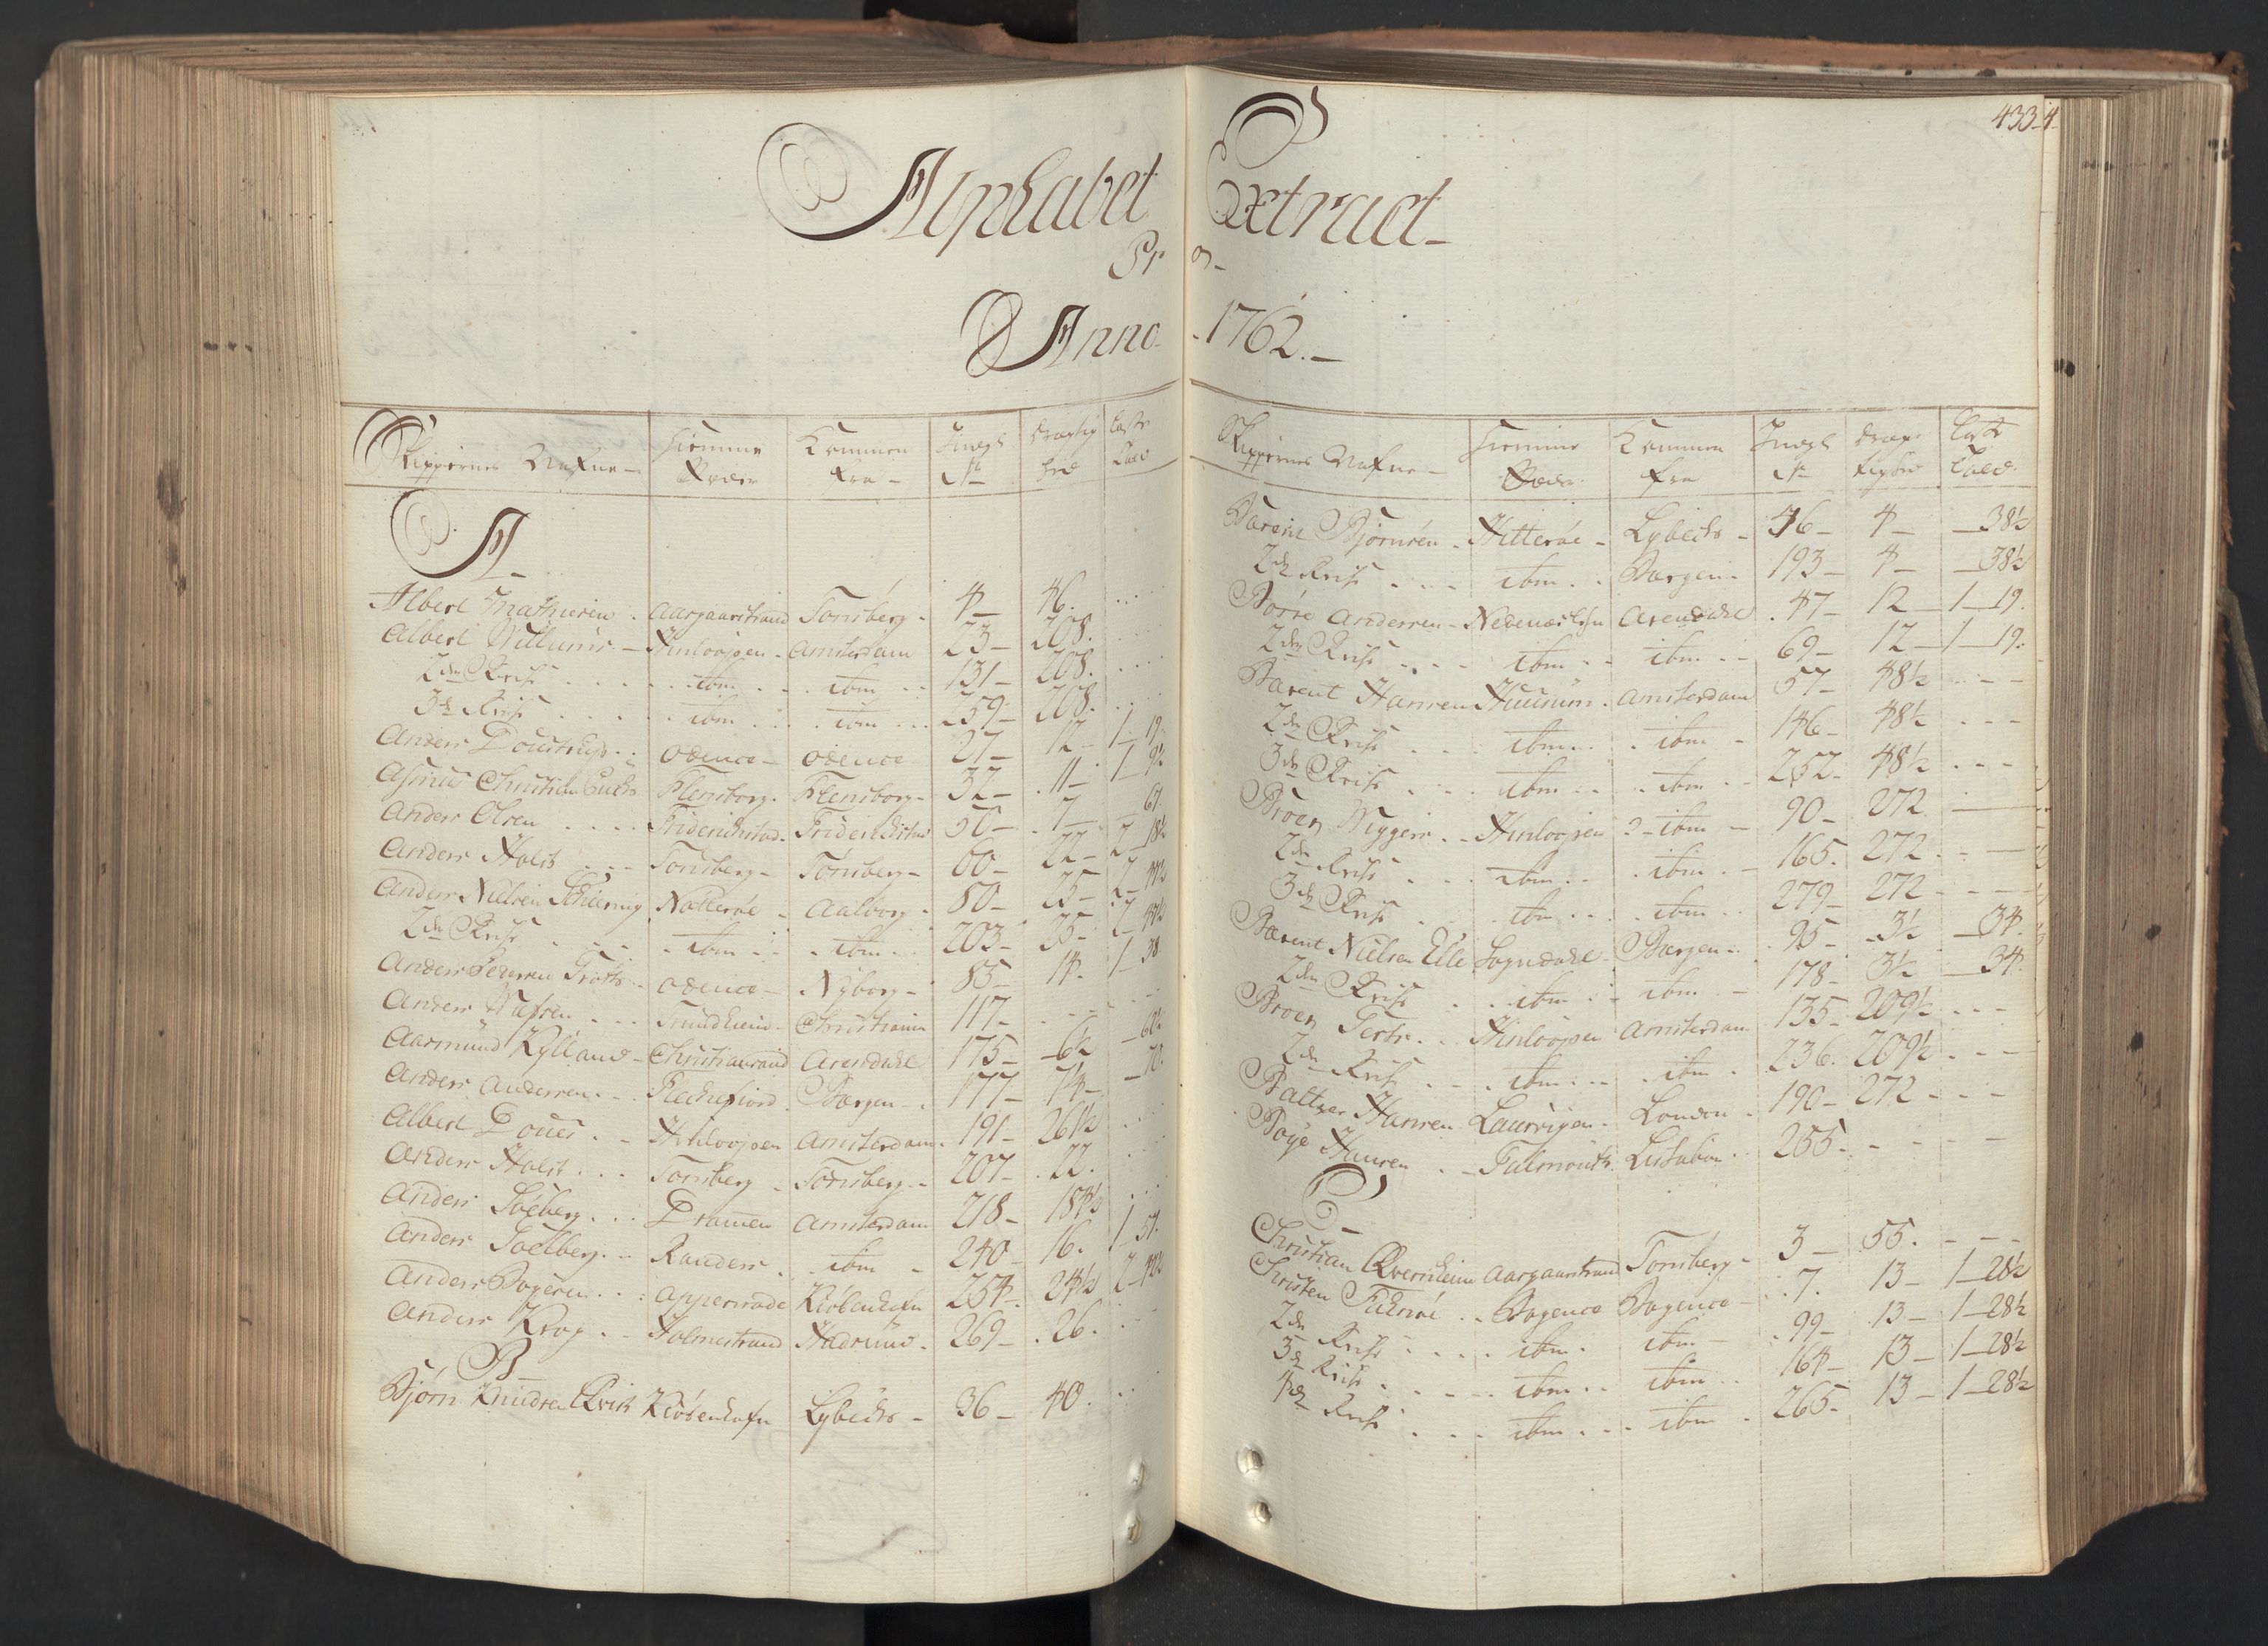 433
Alphabet Extract
Pro
Anno 1762.
Skippernes Nafne Hiemme Kommen Indgl Drægtig Læste
Steder fra No hed Told
A
Albert Mathiesen Aargaarstrand Tonsberg 4 46.
Albert Willums Hinloopen Amsterdam 23 208.
2den Reise ibm ibm 131 208.
3de Reise ibm ibm 259 208.
Anders Doustrup Odence Odence 27 12 1 19.
Asmus Christian Flensborg Flensborg 32 11 1 9½
Anders Olsen Friderichstad Friderichstad 50 7 67.
Anders Holst Tonsberg Tonsberg 60 22 2 18½
Anders Nielsen Nötterøe Aalborg 80 25 2
2den Reise ibm ibm 203 25 2
Anders Pedersen Odence Nÿborg 85 14. 1 38
Anders Christiania 117
Aarmund Kylland Christiansand Arendahl 175 6½
Anders Andersen Flechefiord Bergen 177 7¼ 70.
Albert Doues Hinloopen Amsterdam 191 261½
Anders Holst Tonsberg Tonsberg 207 22.
Anders Soeberg Dramen Amsterdam 218 184½
Anders Soelberg Randers ibm 240 16. 1 57.
Anders Boysen Appenrade Kiöbenhafn 254 24½ 2 42½
Anders Krog Holmestrand 269 26.
B
Bjørn Knudsen Qvist Kiöbenhafn Lybechs 36 40.
Skippernes Nafne Hiemme Kommen Indgl Dræg Læste
Steder fra No tighed Told
Barent Bjørnsen Hitterøe Lybechs 46 4 38½
2den Reise ibm Bergen 193 4 38½
Børre Andersen Arendahl 47 12 1 19.
2den Reise ibm ibm 69 12 1 19.
Barent Hansen Huusum Amsterdam 57 48½
2den Reise ibm ibm 146 48½
3de Reise ibm ibm 257 48½
Broer Wiggers Hinloopen ibm 90 272
2den Reise ibm ibm 165. 272
3de Reise ibm ibm 279 272
Barent Nielsen Elle Sogndahl Bergen 95 3½ 34.
2den Reise ibm ibm 178 3½ 34.
Broer Hinloopen Amsterdam 135 209½
2den Reise ibm ibm 236. 209½
Baltzer Hansen Laurvigen London 190 272
Boye Hansen Falmouth Lissabon 255.
C
Christian Qvernheim Aargaarstrand Tonsberg 3 55.
Christen Fuhrøe Bogence Bogence 7. 13 1 28½
2den Reise ibm ibm 99 13 1 28½
3de Reise ibm ibm 164 13 1 28½
4de Reise ibm ibm 265 13 1 28½